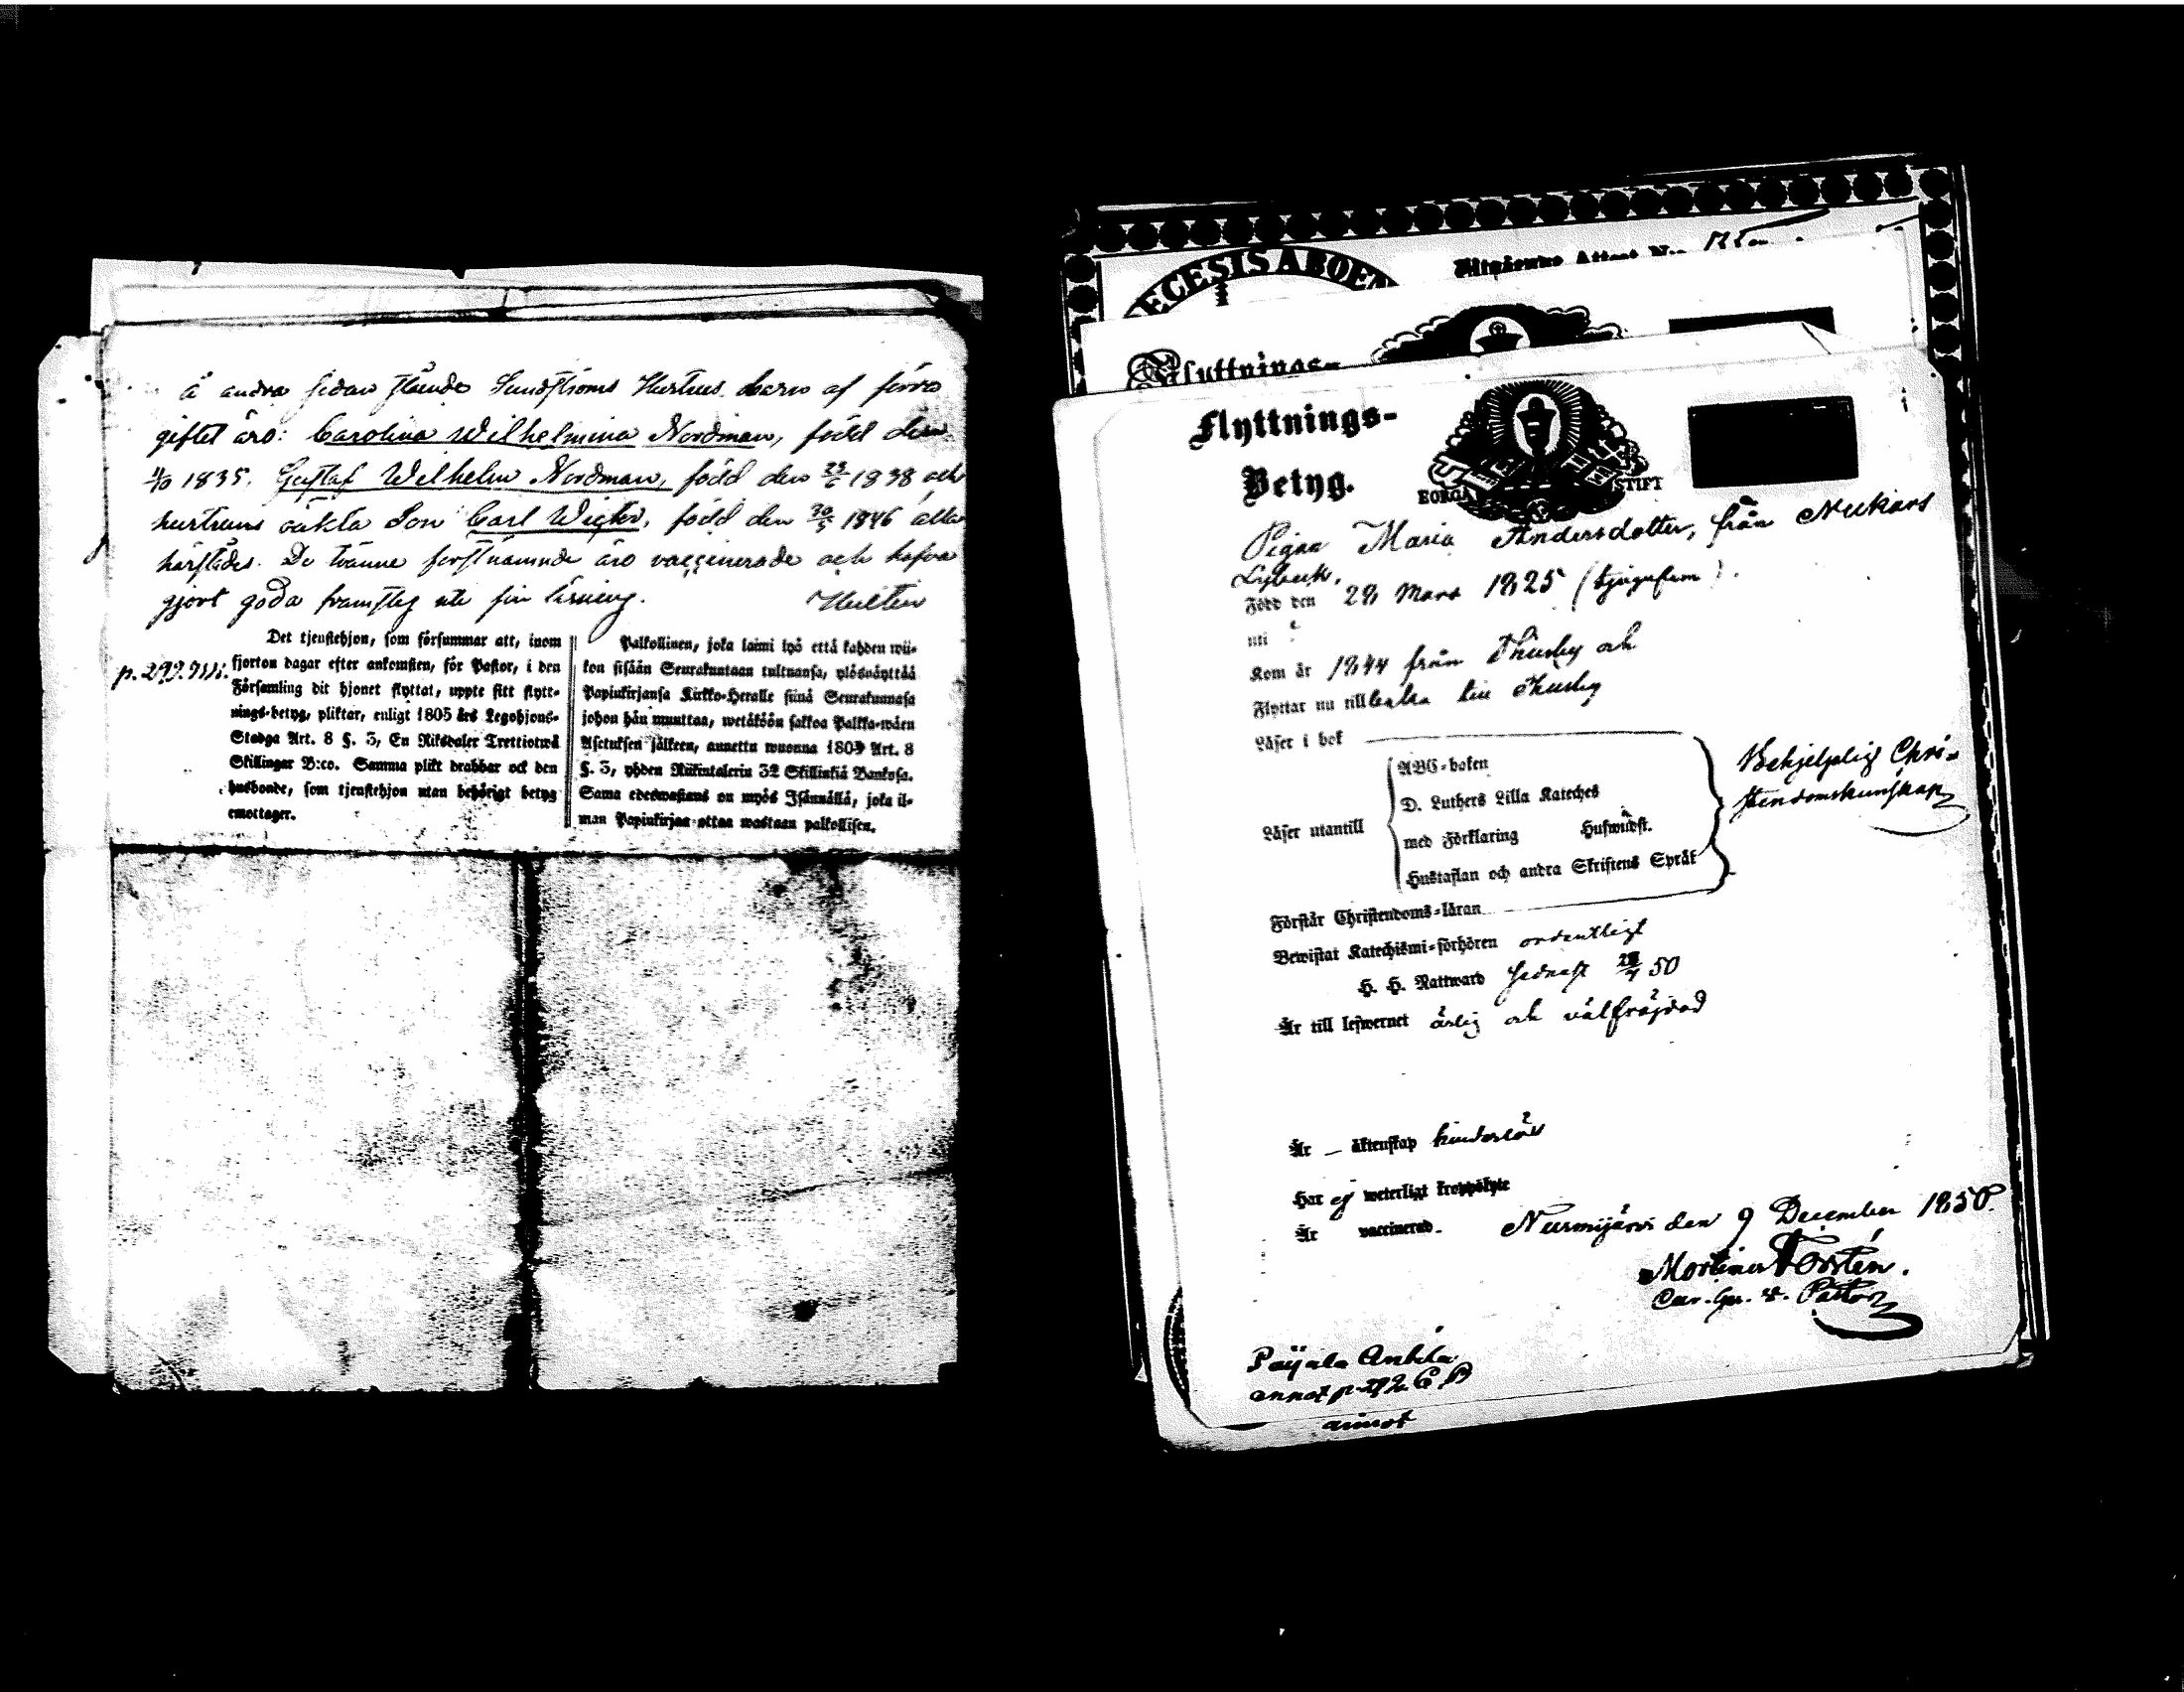 å andra sedan stående Sundströms Hustrus barn af förra
giftet äro: Carolina Wilhelmina Nordman, född den
1835. Gustaf Wilhelm Nordman, född den 23/5 1838 och
hustruns oäkta Son Carl Wictor, född den 30/5 1846 alla
härstädes. De tvänne förstnämnde äro vaccinerade och hafva
gjort goda framsteg uti sin läsning. Hulten
p. 292.
Det tjenstehjon, som försummar att, inom
fjorton dagar efter ankomsten, för Pastor, i den
Församling dit hjonet flyttat, uppte sitt flytt-
nings-betyg, pliktar, enligt 1805 års Legohjons-
Stadga Art. 8 §. 3, En Riksdaler Trettiotwå
Skillingar B:co. Samma plikt drabbar ock den
husbonde, som tjenstehjon utan behörigt betyg
emottager.
Palkollinen, joka laimi lyö että kahden wii-
kon sisään Seurakuntaan tultuansa, ylösnäyttää
Papinkirjansa Kirkko-Herralle siinä Seurakunnasa
johon hän muuttaa, wetäköön sakkoa Palkka-wäen
Asetuksen jälkeen, annettu wuonna 1805 Art. 8
§. 3, yhden Riikintalerin 32 Skillinkiä Bankosa.
Sama edeswastaus on myös Isännällä, joka il-
man Papinkirjaa ottaa wastaan palkollisen.
ECESIS ABOEN
Attest N:o
Flyttnings-
Flyttnings-
Betyg.
BORGÅ STIFT
Pigan Maria Andersdotter, från Nukars
Lybeck.
Född den 28 Mars 1825 (tjugufem).
uti
Kom år 1844 från Thusby och
Flyttar nu till baka till Thusby
Läser i bok
Läser utantill
ABC-boken
D. Luthers Lilla Kateches
med Förklaring Huswudst.
Hustaflan och andra Skriftens Språk
Behjelplig Chri-
stendomskunskap
Förstår Christendoms-läran
Bewistat Katechismi-förhören ordentligt
H. H. Nattward sednast 50
Är till lefwernet ärlig och välfräjdad
Är — äktenskap hinderlös
Har ej weterligt kroppslyte
Är vaccinerad. Nurmijärvi den 9 December 1850.
Mortimer Forstén.
Pastor
Päijälä Anttila
annot p. 292
annot